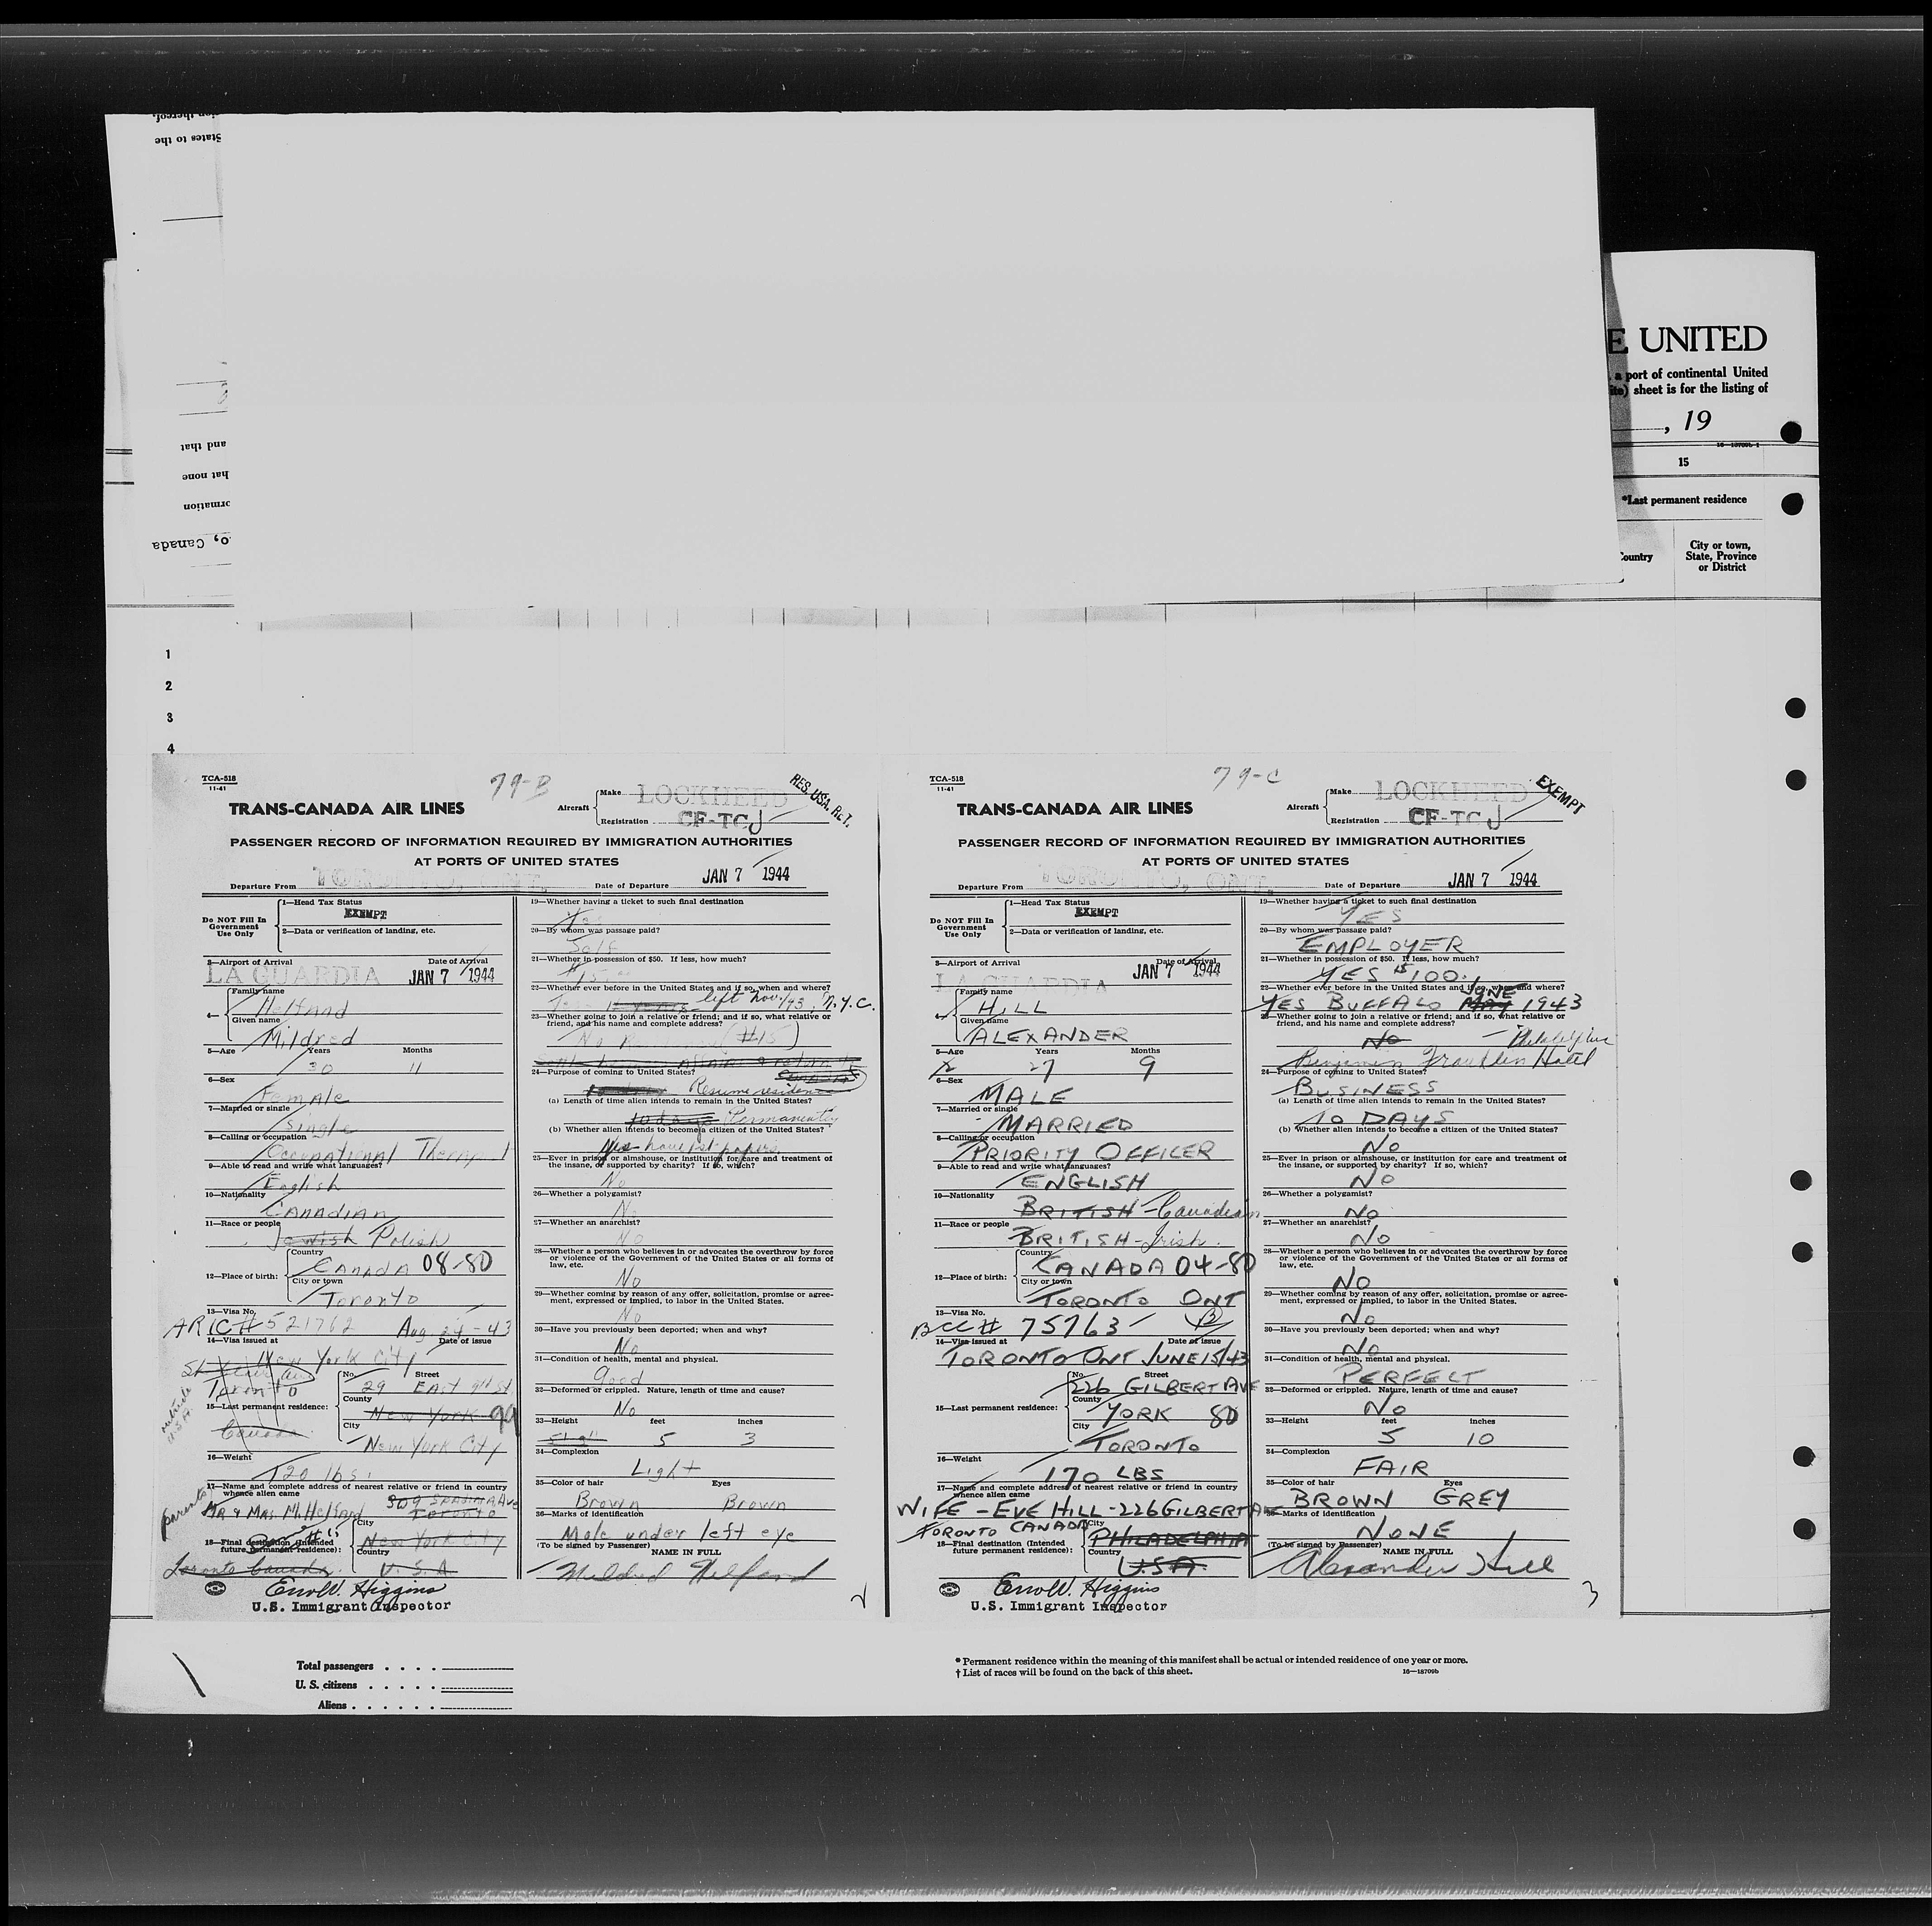 States to the
and that
hat none
ormation
o, Canada
E UNITED
a port of continental United
sheet is for the listing of
, 19
15
*Last permanent residence
Country
City or town,
State, Province
or District
1
2
3
4
TCA-518
11-41
79-B
TRANS-CANADA AIR LINES
Aircraft
Make LOCKHEED
Registration CF-TCJ
RES. USA. RET.
PASSENGER RECORD OF INFORMATION REQUIRED BY IMMIGRATION AUTHORITIES
AT PORTS OF UNITED STATES
Departure From TORONTO, ONT.
Date of Departure JAN 7 1944
Do NOT Fill In
Government
Use Only
1—Head Tax Status
EXEMPT
2—Data or verification of landing, etc.
3—Airport of Arrival Date of Arrival
LA GUARDIA JAN 7 1944
4—
Family name
Helfand
Given name
Mildred
5—Age Years Months
30 11
6—Sex
Female
7—Married or single
Single
8—Calling or occupation
Occupational Therapist
9—Able to read and write what languages?
English
10—Nationality
Canadian
11—Race or people
Jewish Polish
12—Place of birth:
Country
Canada 08-80
City or town
Toronto
13—Visa No.
ARIC# 521762 Aug. 24-43
14—Visa issued at Date of issue
New York City
Toronto
outside
U.S.A.
15—Last permanent residence:
No. Street
29 East 9th St
County
New York 99
City
New York City
Canada
16—Weight
120 lbs.
17—Name and complete address of nearest relative or friend in country
whence alien came
parents
Mr & Mrs. M. Helfand 309 Spadina Ave
Toronto
18—Final destination (Intended
future permanent residence):
City
New York City
Country
U. S. A.
Toronto Canada.
Errol W. Higgins
U.S. Immigrant Inspector
19—Whether having a ticket to such final destination
Yes
20—By whom was passage paid?
Self
21—Whether in possession of $50. If less, how much?
$15
22—Whether ever before in the United States and if so, when and where?
left Nov./43. N.Y.C.
23—Whether going to join a relative or friend; and if so, what relative or
friend, and his name and complete address?
No Residence (#15)
24—Purpose of coming to United States?
Resume residence
(a) Length of time alien intends to remain in the United States?
10 days Permanently
(b) Whether alien intends to become a citizen of the United States?
Yes have 1st papers.
25—Ever in prison or almshouse, or institution for care and treatment of
the insane, or supported by charity? If so, which?
No
26—Whether a polygamist?
No
27—Whether an anarchist?
No
28—Whether a person who believes in or advocates the overthrow by force
or violence of the Government of the United States or all forms of
law, etc.
No
29—Whether coming by reason of any offer, solicitation, promise or agree-
ment, expressed or implied, to labor in the United States.
No
30—Have you previously been deported; when and why?
No
31—Condition of health, mental and physical.
Good
32—Deformed or crippled. Nature, length of time and cause?
No
33—Height feet inches
5 3
34—Complexion
Light
35—Color of hair Eyes
Brown Brown
36—Marks of identification
Mole under left eye
(To be signed by Passenger) NAME IN FULL
Mildred Helfand
2
TCA-518
11-41
79-C
TRANS-CANADA AIR LINES
Aircraft
Make LOCKHEED
Registration CF-TCJ
EXEMPT
PASSENGER RECORD OF INFORMATION REQUIRED BY IMMIGRATION AUTHORITIES
AT PORTS OF UNITED STATES
Departure From TORONTO, ONT.
Date of Departure JAN 7 1944
Do NOT Fill In
Government
Use Only
1—Head Tax Status
EXEMPT
2—Data or verification of landing, etc.
3—Airport of Arrival Date of Arrival
LA GUARDIA JAN 7 1944
4—
Family name
HILL
Given name
ALEXANDER
5—Age Years Months
27 9
6—Sex
MALE
7—Married or single
MARRIED
8—Calling or occupation
PRIORITY OFFICER
9—Able to read and write what languages?
ENGLISH
10—Nationality
BRITISH - Canadian
11—Race or people
BRITISH - Irish.
12—Place of birth:
Country
CANADA 04-80
City or town
TORONTO ONT
13—Visa No.
BCC # 75763
14—Visa issued at Date of issue
TORONTO ONT JUNE 15/43
15—Last permanent residence:
No. Street
226 GILBERT AVE
County
YORK 80
City
TORONTO
16—Weight
170 LBS
17—Name and complete address of nearest relative or friend in country
whence alien came
WIFE - EVE HILL - 226 GILBERT AVE
TORONTO CANADA
18—Final destination (Intended
future permanent residence):
City
PHILADELPHIA
Country
U.S.A.
Errol W. Higgins
U.S. Immigrant Inspector
19—Whether having a ticket to such final destination
YES
20—By whom was passage paid?
EMPLOYER
21—Whether in possession of $50. If less, how much?
YES $100.
22—Whether ever before in the United States and if so, when and where?
YES BUFFALO MAY JUNE 1943
23—Whether going to join a relative or friend; and if so, what relative or
friend, and his name and complete address?
No - Philadelphia
Benjamin Franklin Hotel
24—Purpose of coming to United States?
BUSINESS
(a) Length of time alien intends to remain in the United States?
10 DAYS
(b) Whether alien intends to become a citizen of the United States?
NO
25—Ever in prison or almshouse, or institution for care and treatment of
the insane, or supported by charity? If so, which?
NO
26—Whether a polygamist?
NO
27—Whether an anarchist?
NO
28—Whether a person who believes in or advocates the overthrow by force
or violence of the Government of the United States or all forms of
law, etc.
NO
29—Whether coming by reason of any offer, solicitation, promise or agree-
ment, expressed or implied, to labor in the United States.
NO
30—Have you previously been deported; when and why?
NO
31—Condition of health, mental and physical.
PERFECT
32—Deformed or crippled. Nature, length of time and cause?
NO
33—Height feet inches
5 10
34—Complexion
FAIR
35—Color of hair Eyes
BROWN GREY
36—Marks of identification
NONE
(To be signed by Passenger) NAME IN FULL
Alexander Hill
3
Total passengers . . . .
U. S. citizens . . . . .
Aliens . . . . . .
* Permanent residence within the meaning of this manifest shall be actual or intended residence of one year or more.
† List of races will be found on the back of this sheet.
16—18709b